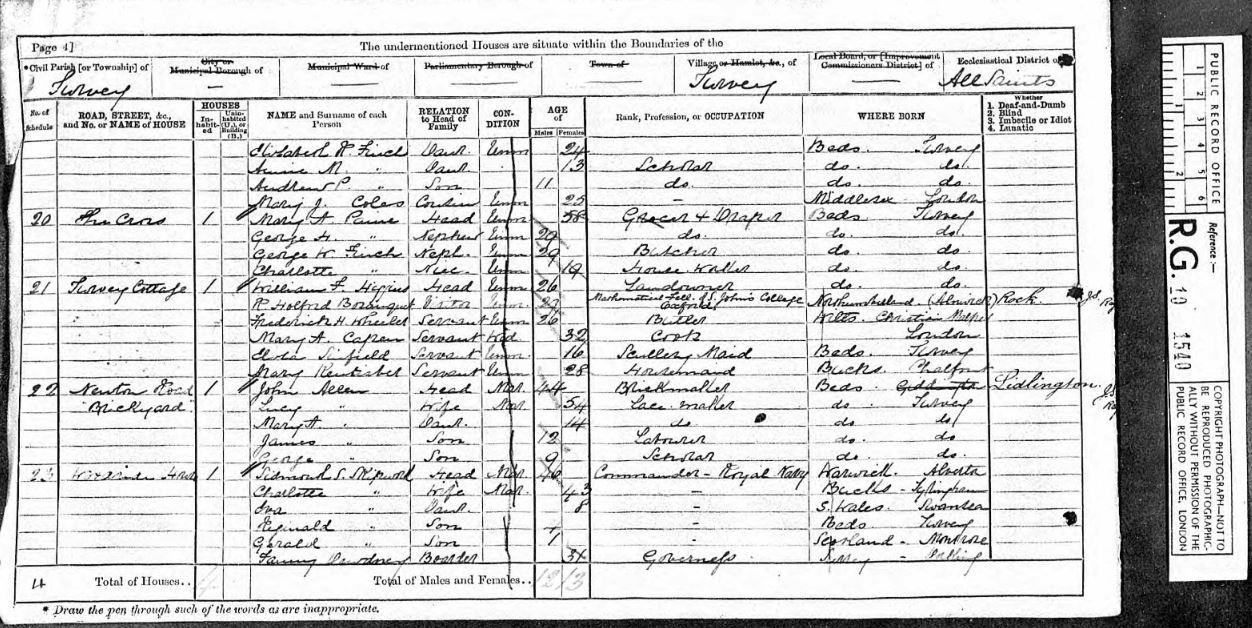 Page 4] The undermentioned Houses are situate within the Boundaries of the
*Civil Parish [or Township] of City or Municipal Borough of Municipal Ward of Parliamentary Borough of Town of Village or Hamlet, &c., of Local Board, or [Improvement Commissioners District] of Ecclesiastical District of
Turvey — — — — Turvey — All Saints
No. of Schedule ROAD, STREET, &c., and No. or NAME of HOUSE HOUSES Inhabited Uninhabited (U.), or Building (B.) NAME and Surname of each Person RELATION to Head of Family CONDITION AGE of Males Females Rank, Profession, or OCCUPATION WHERE BORN Whether 1. Deaf-and-Dumb 2. Blind 3. Imbecile or Idiot 4. Lunatic
Elizabeth Finch Daur. Unm 24 Beds. Turvey
Annie M. " Daur. 13 Scholar do. do.
Andrew P. " Son 11 do. do. do.
Mary J. Coles Cousin Unm 25 — Middlesex London
20 Cross 1 Mary A Head Unm 58 Grocer & Draper Beds Turvey
George H. " Nephew Unm 29 do. do. do.
George W. Finch Neph. Unm 29 Butcher do. do.
Charlotte " Niece Unm 19 do. do.
21 Turvey Cottage 1 William F. Higgins Head Unm 26 Landowner do. do.
Holford Bosanquet Visitor Unm Mathematical of St. John's College Oxford. Northumberland (Alnwick) Rock.
Frederick H. Wheeler Servant Unm 26 Butler Wilts. Christian Malford
Mary A. Servant Wid. 32 Cook London
Servant Unm 16 Scullery Maid Beds. Turvey
Mary Servant Unm 28 Housemaid Bucks. Chalfont
22 Newton Road Brickyard 1 John Allen Head Mar. 44 Brickmaker Beds Lidlington.
Lucy " Wife Mar. 54 Lace-maker do. Turvey
Mary A. " Daur. 14 do. do do
James " Son 12 Labourer do. do
George " Son 9 Scholar do. do.
23 1 S. Skipworth Head Mar. 46 Commander — Royal Navy Warwick.
Charlotte " Wife Mar. 43 — Bucks - Tyringham
Eva " Daur. 8 — S. Wales. Swansea
Reginald " Son — Beds Turvey
Gerald " Son — Scotland - Montrose
Fanny Boarder Governess
4 Total of Houses.. 4 Total of Males and Females.. 12 13
* Draw the pen through such of the words as are inappropriate.
PUBLIC RECORD OFFICE
1 2 3 4 5 6
Reference :-
R.G. 10 1540
COPYRIGHT PHOTOGRAPH—NOT TO BE REPRODUCED PHOTOGRAPHICALLY WITHOUT PERMISSION OF THE PUBLIC RECORD OFFICE, LONDON